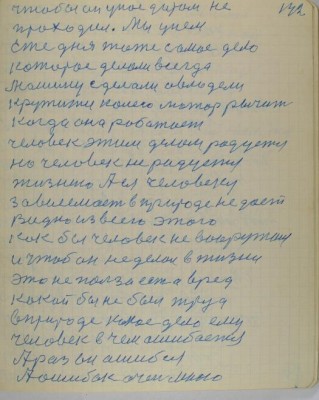 чтобы он упое даром не 142
проходил. Мы умем
сте дня тоже самое дело
которое делом всегда
машину сделали овлодели
крутитки колесо мотор рычит
когда она работает
человек этим делом радуется
но человек не радуется
жизнию А ея человеку
зависимает в природе не дает
видно из всего этого
как бы человек не вооружали
и чтобы он не делал в жизни
это не полза ест а вред
какой бы не был труд
в природе како дело ему
человек в чем ошибается
А раз он ошибся
А ошибок очи много